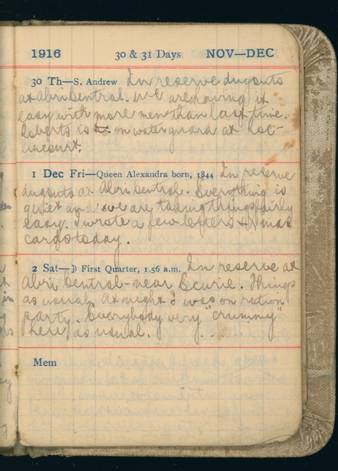 1916 30 & 31 Days NOV—DEC
30 Th—S. Andrew In reserve dugouts
at Abri Central. We are having it
easy with more men than last time.
Roberts is on water guard at
1 Dec Fri—Queen Alexandra born, 1844 In reserve
dugouts at Abri Central. Everything is
quiet and we are taking things fairly
easy. Wrote a few letters & Xmas
cards today.
2 Sat—☽ First Quarter, 1.56 a.m. In reserve at
Abri Central near Ecurie. Things
as usual. At night I was on ration
party. Everybody very "crummy"
here, as usual.
Mem